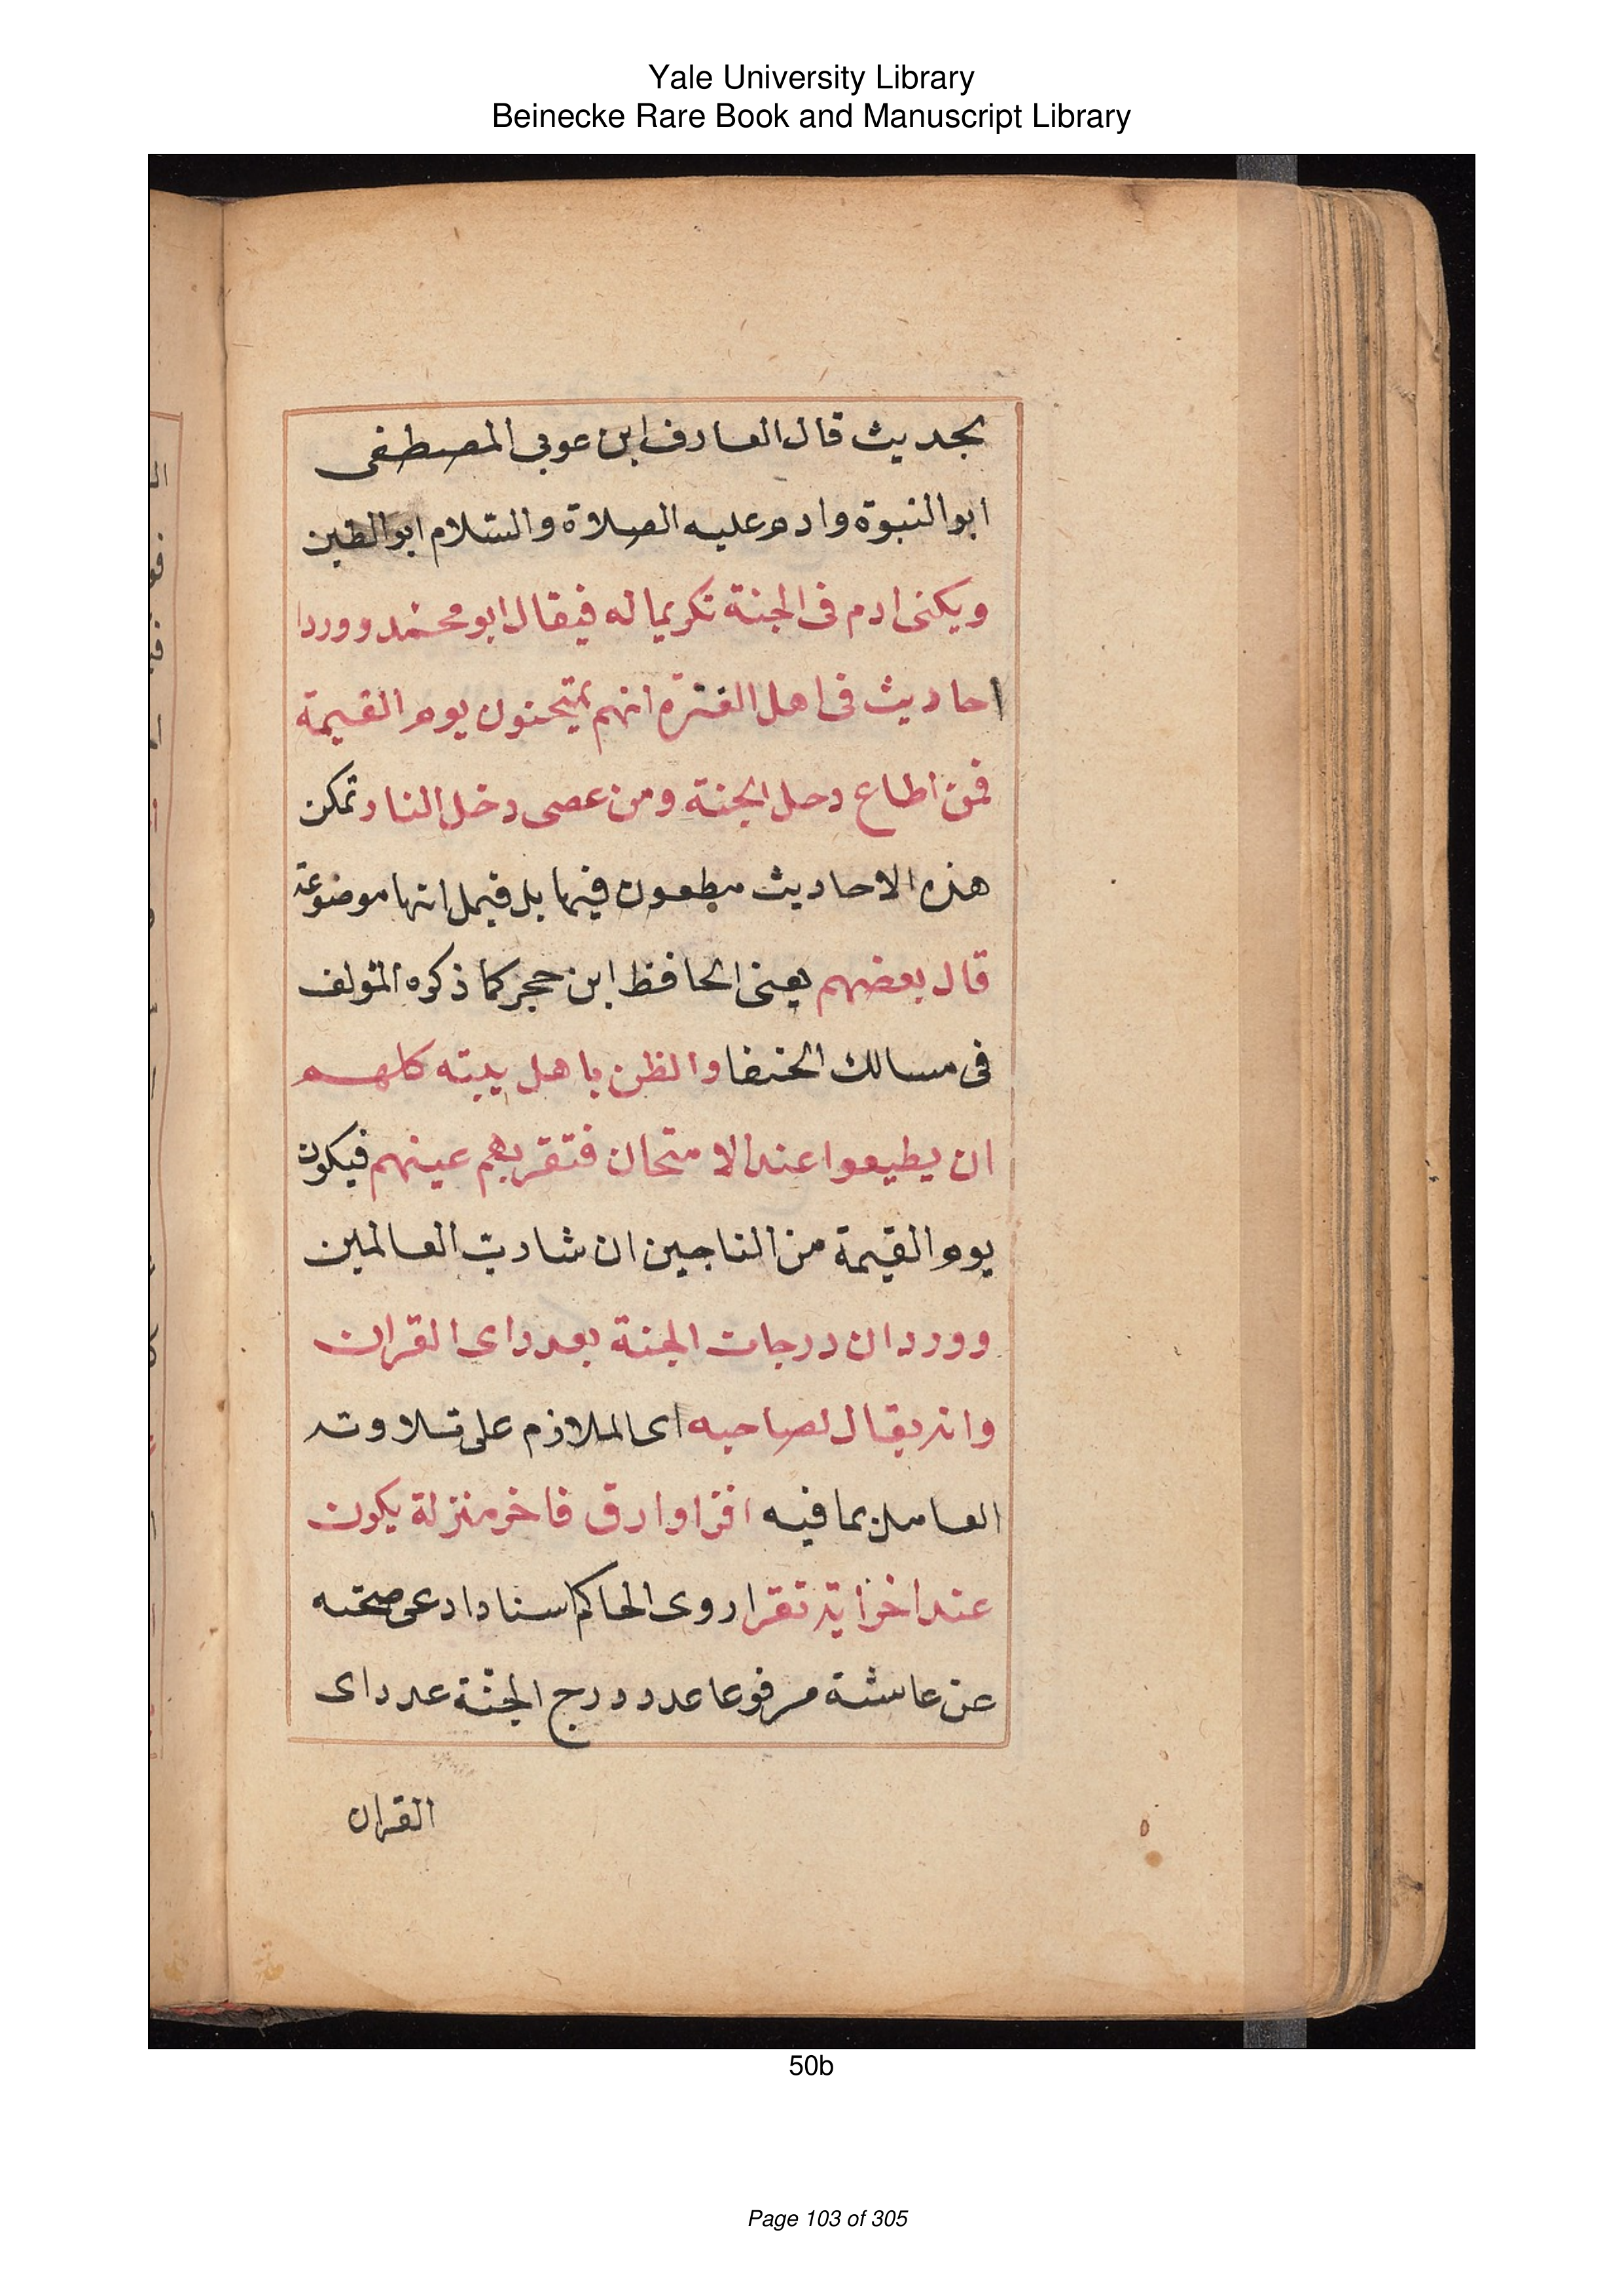 Yale University Library
Beinecke Rare Book and Manuscript Library
بحديث قال العارف ابن عربي المصطفى
ابو النبوة وادم عليه الصلاة والسّلام ابو الطين
ويكنى ادم فى الجنة تكريما له فيقال ابو محمّد ووردا
احاديث فى اهل الفترة انهم يمتحنون يوم القيمة
فمن اطاع دخل الجنة ومن عصى دخل النار تمكن
هذه الاحاديث مطعون فيها بل قيل انها موضوعة
قال بعضهم يعنى الحافظ ابن حجر كما ذكره المؤلف
فى مسالك الحنفا والظن باهل بيته كلهم
ان يطيعوا عند الامتحان فتقر بهم عينهم فيكون
يوم القيمة من الناجين ان شا ربّ العالمين
وورد ان درجات الجنة بعدد اى القران
وانه يقال لصاحبه اى الملازم على تلاوته
العامل بما فيه اقرا وارق فاخر منزلة يكون
عند اخر اية تقرا روى الحاكم اسنادا دعى صحته
عن عاشة مرفوعا عدد درج الجنّة عدد اى
القران
50b
Page 103 of 305